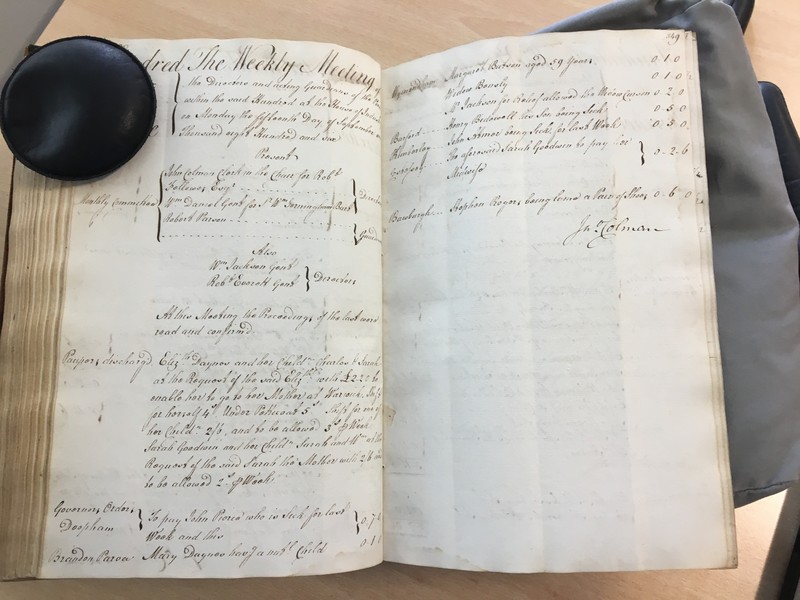 dred The Weekly Meeting of
the Directors and acting Guardians of the
within the said Hundred at the House of
on Monday the fifteenth Day of September
Thousand eight Hundred and six
Present
John Colman Clerk in the Chair for Robt
Fellowes Esqr
Weekly Committee
Wm Daniel Gent for Sr Wm Jerningham Bart
Robert Parson
Director
Guardi
Also
Wm Jackson Gent
Robt Everett Gent
Directors
At this Meeting the Proceedings of the last were
read and confirmed.
Paupers discharg'd Elizth Daynes and her Childn Charles & Sarah
at the Request of the said Elizth with £2.2.0 to
enable her to go to her Mother at Warwick, Shift
for herself 4s. Under Petticoat 5s. Shift for one of
her Childn 2/6, and to be allowed 3s. ⅌ Week
Sarah Goodwin and her Childn Sarah and Wm at the
Request of the said Sarah the Mother with 2/6 and
to be allowed 2s. ⅌ Week
Governors Orders
Deopham
To pay John Pierce who is Sick for last
Week and this
0.7.
Brandon Parva Mary Daynes hav'g a natl Child 0.1
349
Margaret Batson aged 59 Years 0.1.0
Widow Bously 0.1.0
Mr Jackson for Relief allowed the Widow Curson 0.2.0
Barford Henry Bidewell his Son being Sick 0.5.0
Kimberley John Armor being Sick for last Week 0.5.0
The aforesaid Sarah Goodwin to pay her
Midwife
0.2.6
Bawburgh Stephen Rogers being lame a Pair of Shoes 0.6.0
Jn. Colman